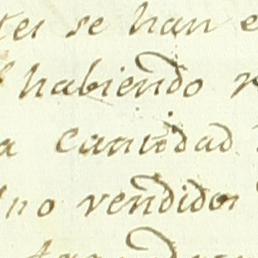 tes se han e
habiendo
a cantidad
no vendidos